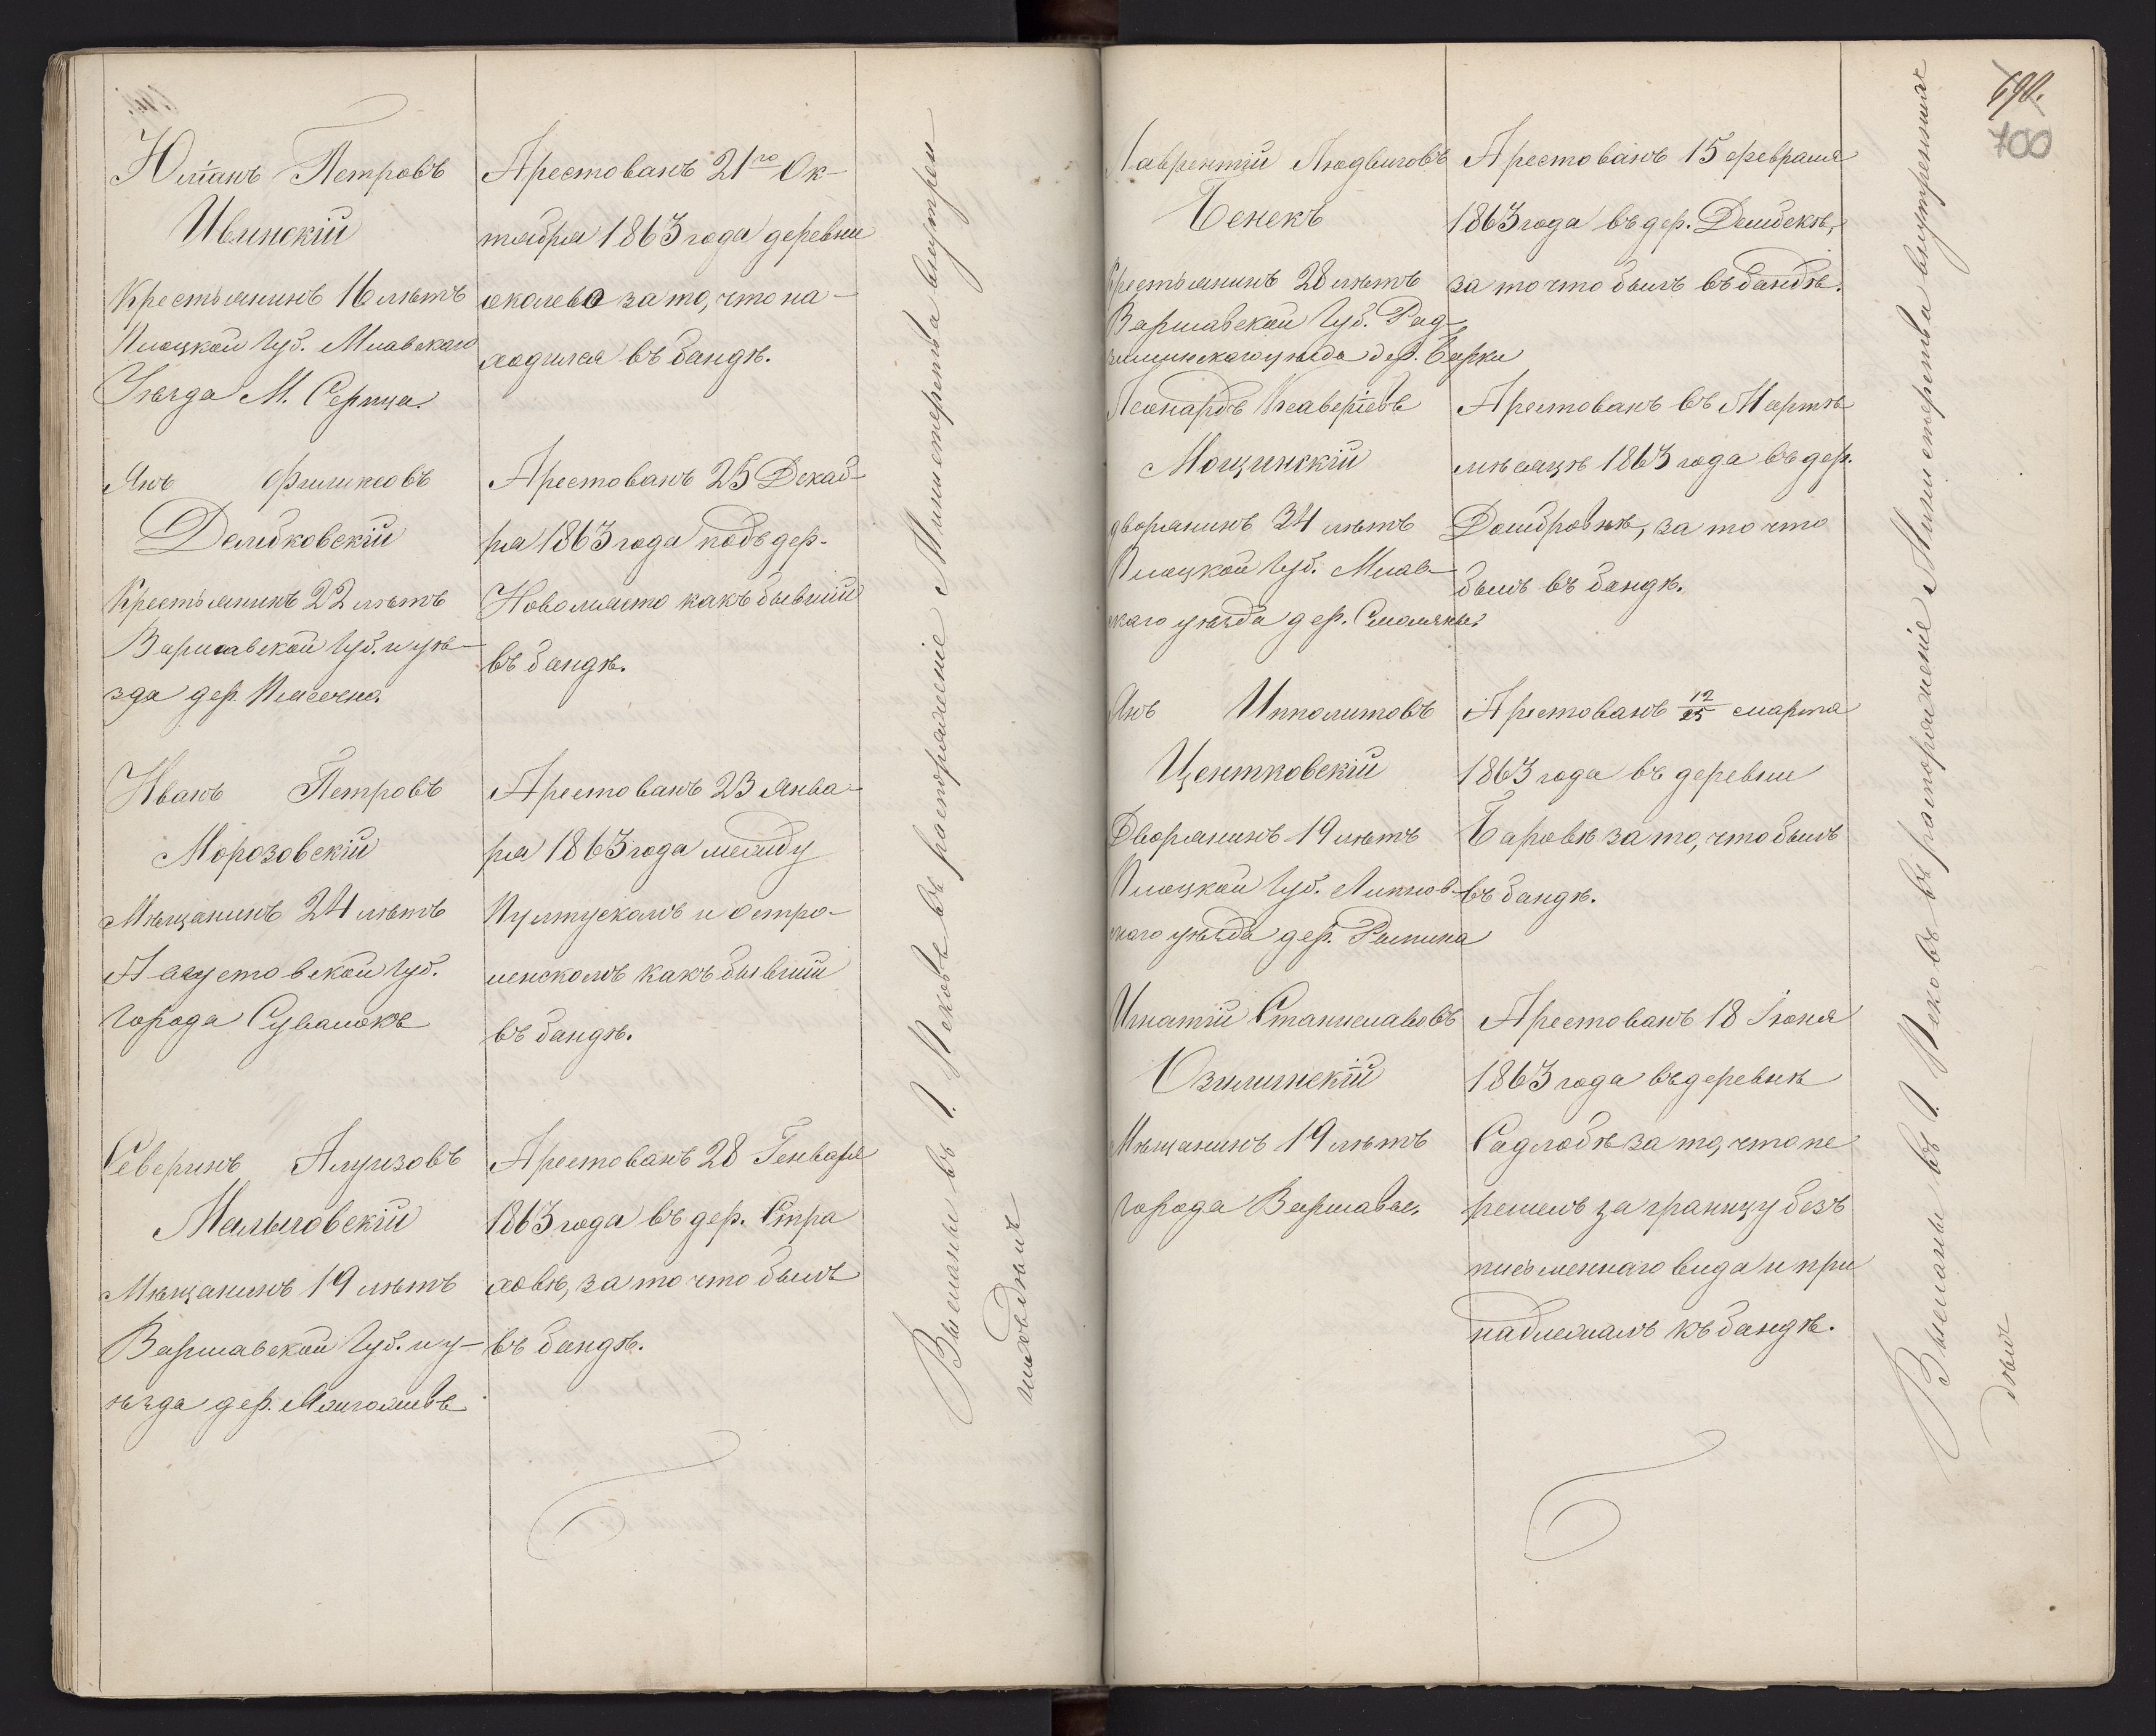 Юліанъ Петровъ
Ивинскій
Крестьянинъ 16 лѣтъ
Плоцкой Губ. Млавскаго
Уѣзда М. Серпца.
Арестованъ 21го Ок-
тября 1863 года деревни
околево за то, что на-
ходился въ бандѣ.
Янъ
Дембковскій
Крестьянинъ 22 лѣтъ
Варшавской Губ. и уѣ-
зда дер. Пясечна.
Арестованъ 25 Декаб-
ря 1863 года подъ дер.
Новомясто какъ бывшій
въ бандѣ.
Иванъ Петровъ
Морозовскій
Мѣщанинъ 24 лѣтъ
Августовской Губ.
города Сувалокъ
Арестованъ 23 Янва-
ря 1863 года между
Пултускомъ и Остро-
ленскомъ какъ бывшій
въ бандѣ.
Северинъ Алуизовъ
Малыговскій
Мѣщанинъ 19 лѣтъ
Варшавской Губ. и у-
ѣзда дер.
Арестованъ 28 Генваря
1863 года въ дер. Стра
ховѣ, за то что былъ
въ бандѣ.
Высланы въ Г. Псковъ въ распоряженіе Министерства внутрен
нихъ дѣлъ
690.
700
Лаврентій Людвиговъ
Бенекъ
Крестьянинъ 28 лѣтъ
Варшавской Губ. Рад-
уѣзда дер. Барки
Арестованъ 15 февраля
1863 года въ дер. Дембекъ,
за то что былъ въ бандѣ.
Леонардъ Ксаверіевъ
Мощинскій
дворянинъ 34 лѣтъ
Плоцкой Губ. Млав-
скаго уѣзда дер. Смоляны.
Арестованъ въ Мартѣ
мѣсяцѣ 1863 года въ дер.
Домбровкѣ, за то что
былъ въ бандѣ.
Янъ Ипполитовъ
Центковскій
Дворянинъ 19 лѣтъ
Плоцкой Губ. Липнов-
скаго уѣзда дер. Рыпина
Арестованъ 12/25 марта
1863 года въ деревни
Баровѣ за то, что былъ
въ бандѣ.
Игнатій Станиславовъ
Озилинскій
Мѣщанинъ 19 лѣтъ
города Варшавы.
Арестованъ 18 Іюня
1863 года въ деревнѣ
Садловѣ за то, что пе
решелъ за границу безъ
письменнаго вида и при
надлежалъ къ бандѣ.
Высланы въ Г. Псковъ въ распоряженіе Министерства внутреннихъ
дѣлъ